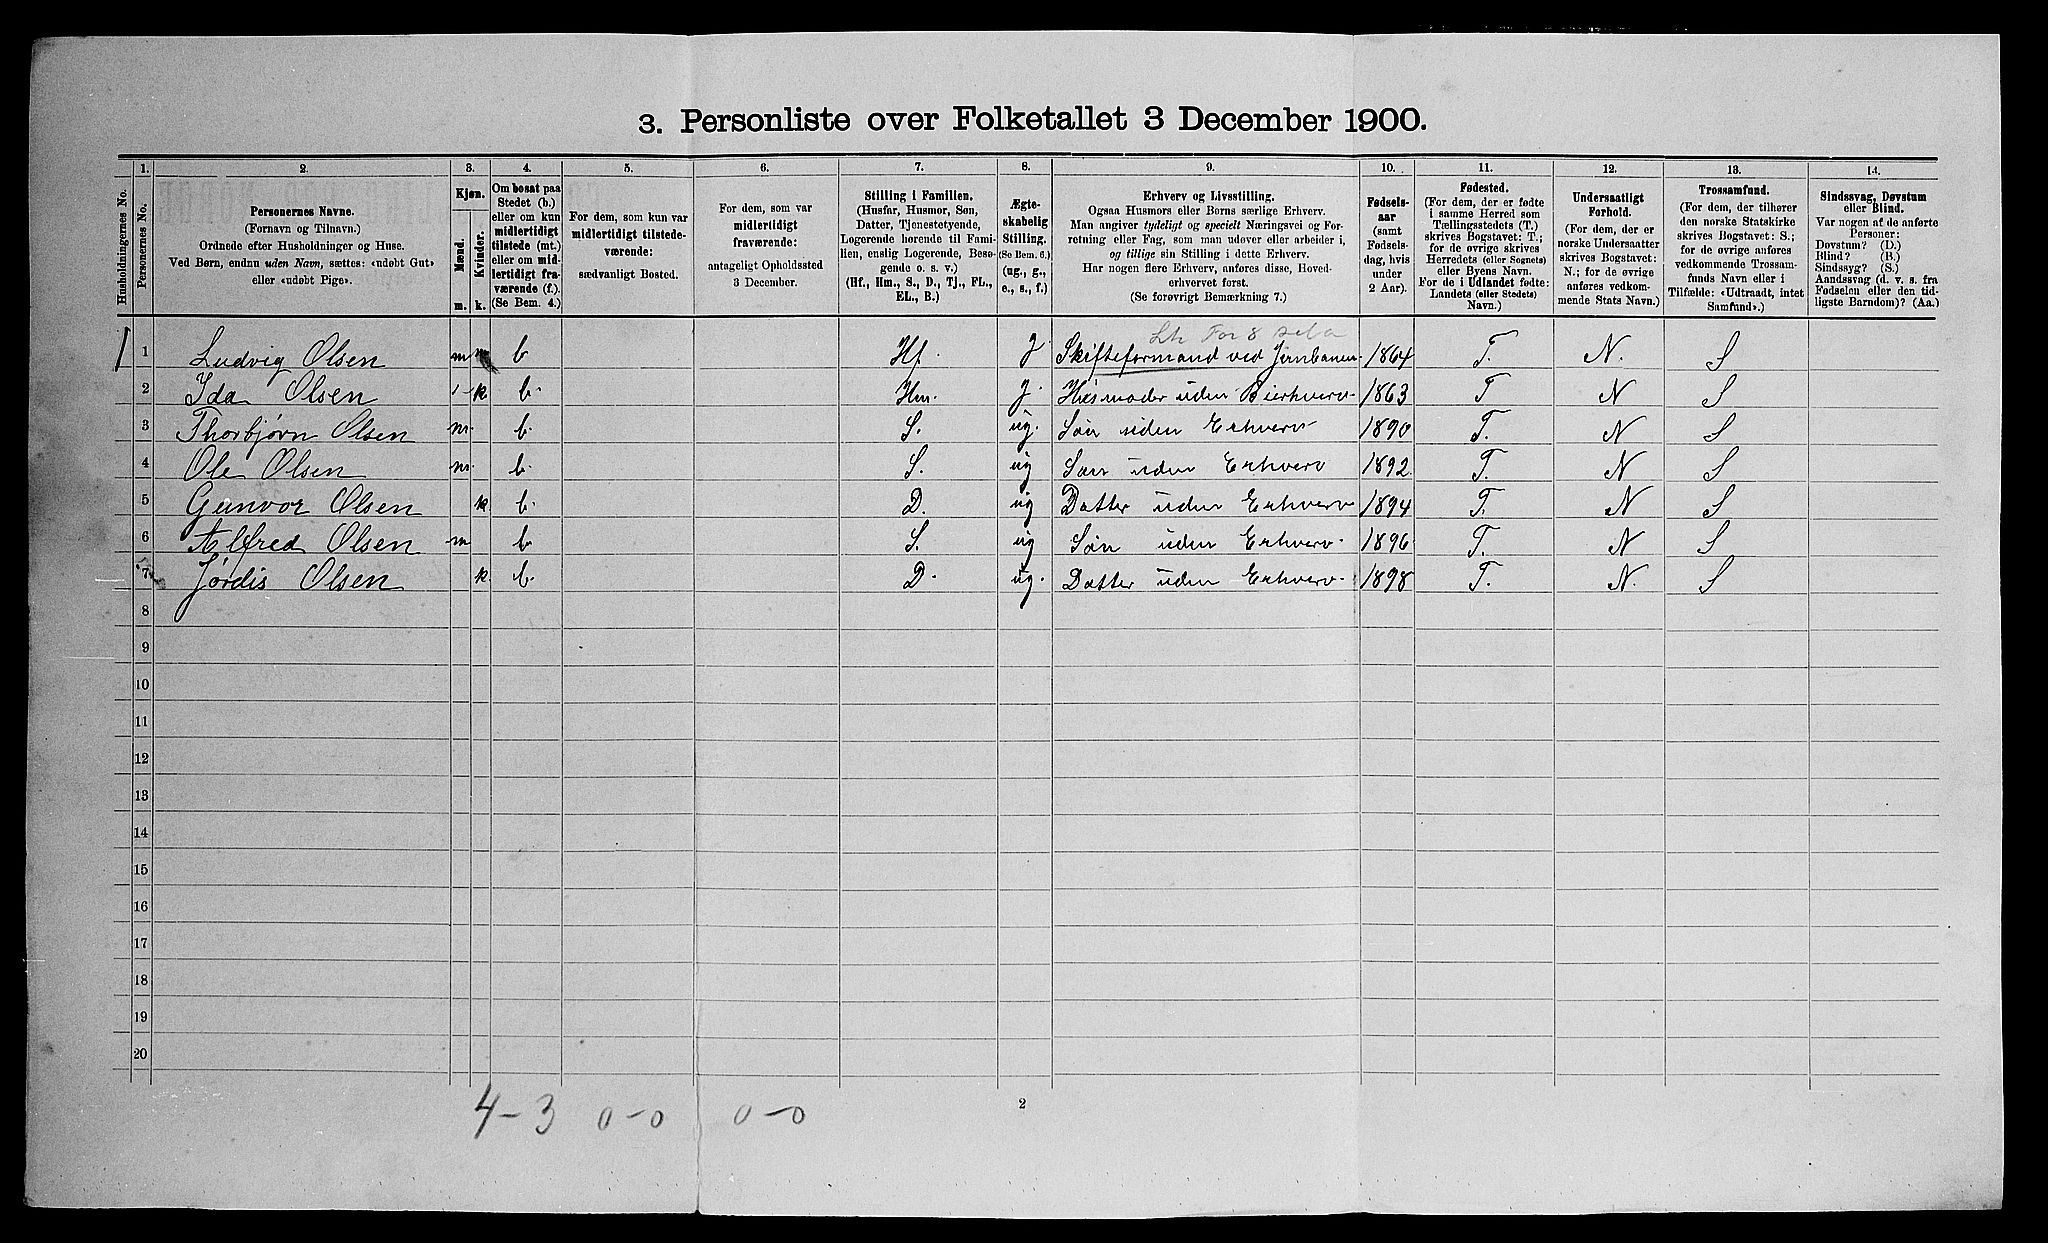 3. Personliste over Folketallet 3 December 1900.
1. 2. 3. 4. 5. 6. 7. 8. 9. 10. 11. 12. 13. 14.
Husholdningernes No.
Personernes No.
Personernes Navne.
(Fornavn og Tilnavn.)
Ordnede efter Husholdninger og Huse.
Ved Børn, endnu uden Navn, sættes: «udøbt Gut»
eller «udøbt Pige».
Kjøn.
Mænd.
Kvinder.
m. k.
Om bosat paa
Stedet (b.)
eller om kun
midlertidigt
tilstede (mt.)
eller om mid-
lertidigt fra-
værende (f.)
(Se Bem. 4.)
For dem, som kun var
midlertidigt tilstede-
værende:
sædvanligt Bosted.
For dem, som var
midlertidigt
fraværende:
antageligt Opholdssted
3 December.
Stilling i Familien.
(Husfar, Husmor, Søn,
Datter, Tjenestetyende,
Logerende hørende til Fami-
lien, enslig Logerende, Besø-
gende o. s. v.)
(Hf., Hm., S., D., Tj., FL.,
EL., B.)
Ægte-
skabelig
Stilling.
(Se Bem. 6.)
(ug., g.,
e., s., f.)
Erhverv og Livsstilling.
Ogsaa Husmors eller Børns særlige Erhverv.
Man angiver tydeligt og specielt Næringsvei og For-
retning eller Fag, som man udøver eller arbeider i,
og tillige sin Stilling i dette Erhverv.
Har nogen flere Erhverv, anføres disse, Hoved-
erhvervet først.
(Se forøvrigt Bemærkning 7.)
Fødsels-
aar
(samt
Fødsels-
dag, hvis
under
2 Aar).
Fødested.
(For dem, der er fødte
i samme Herred som
Tællingsstedets (T.)
skrives Bogstavet: T.;
for de øvrige skrives
Herredets (eller Sognets)
eller Byens Navn.
For de i Udlandet fødte:
Landets (eller Stedets)
Navn.)
Undersaatligt
Forhold.
(For dem, der er
norske Undersaatter
skrives Bogstavet:
N.; for de øvrige
anføres vedkom-
mende Stats Navn.)
Trossamfund.
(For dem, der tilhører
den norske Statskirke
skrives Bogstavet: S.;
for de øvrige anføres
vedkommende Trossam-
funds Navn eller i
Tilfælde: «Udtraadt, intet
Samfund».)
Sindssvag, Døvstum
eller Blind.
Var nogen af de anførte
Personer:
Døvstum? (D.)
Blind? (B.)
Sindssyg? (S.)
Aandssvag (d. v. s. fra
Fødselen eller den tid-
ligste Barndom)? (Aa.)
1 1 Ludvig Olsen m b Hf. g Skifteformand ved Jernbanen 1864 T. N. S
2 Ida Olsen k b. Hm. g. Husmoder uden Bierhverv. 1863 T N S
3 Thorbjørn Olsen m. b. S. ug. Søn uden Erhverv 1890 T. N S
4 Ole Olsen m. b. S. ug Søn uden Erhverv 1892. T. N S
5 Gunvor Olsen k b. D. ug Datter uden Erhverv 1894 T. N S
6 Alfred Olsen m b. S. ug Søn uden Erhverv. 1896 T. N S
7 Jørdis Olsen k. b. D. ug. Datter uden Erhverv. 1898 T. N. S
8
9
10
11
12
13
14
15
16
17
18
19
20
4-3 0-0 0-0
2